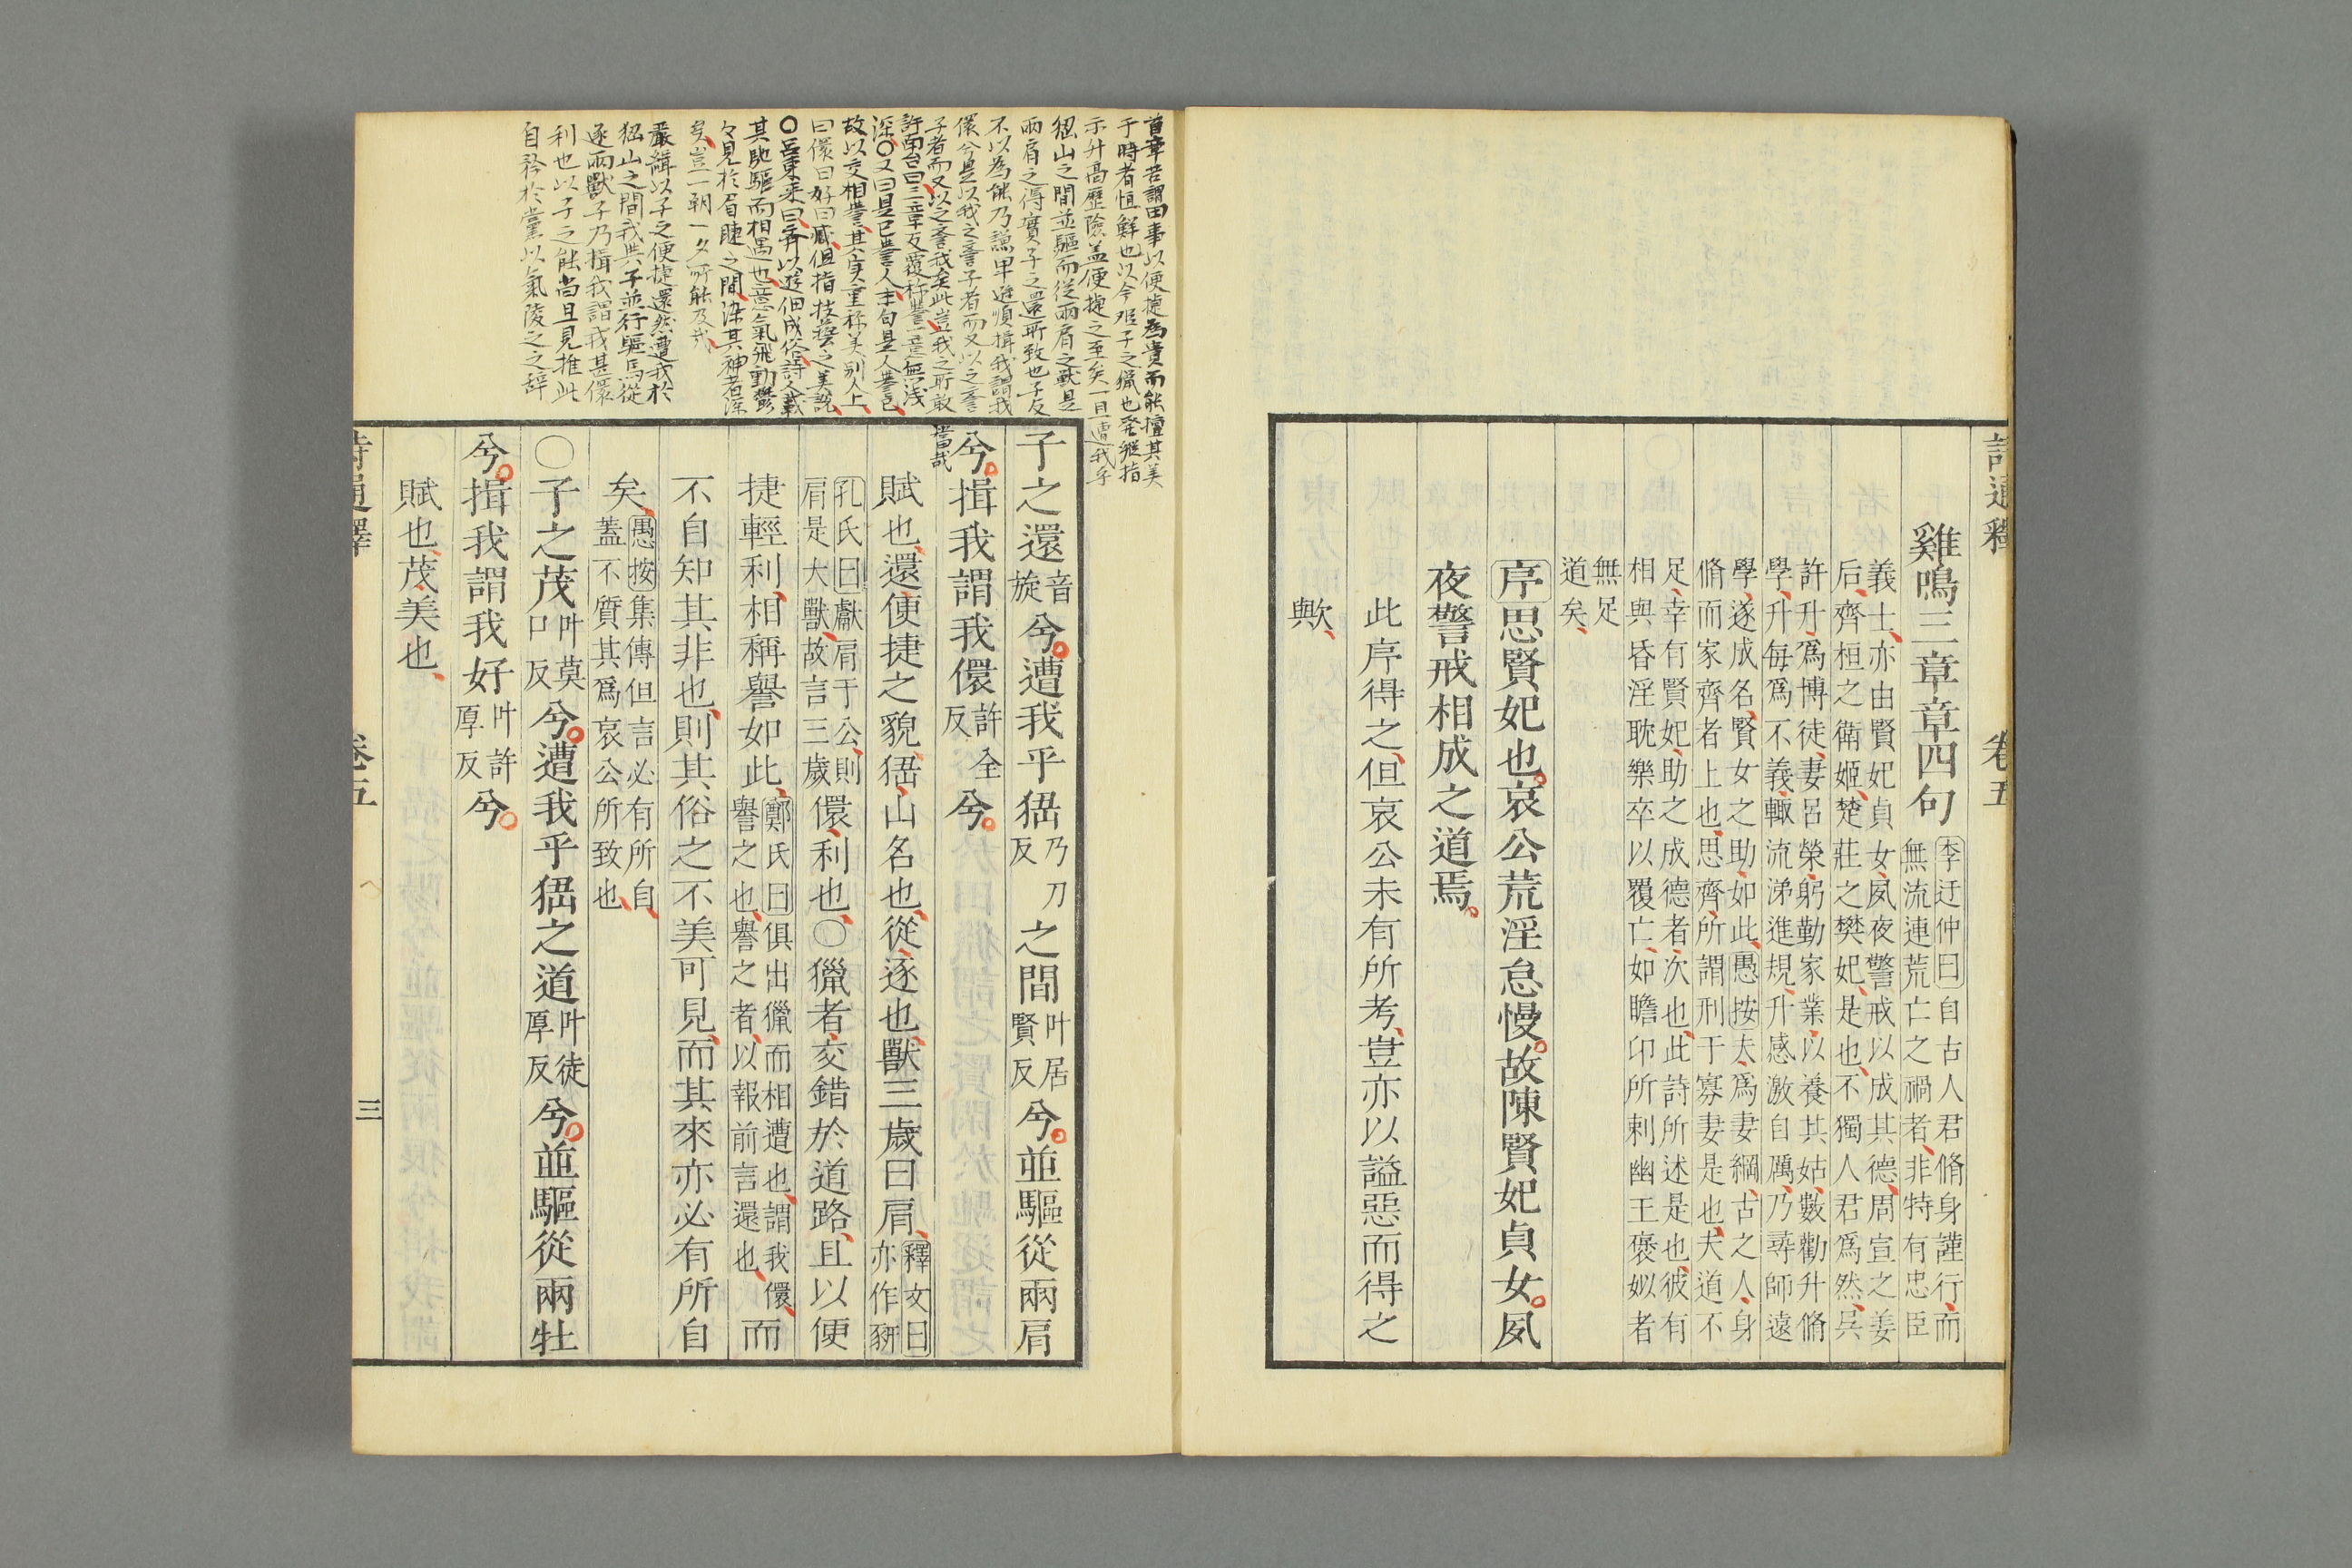 詩通釋　卷五
雞鳴三章章四句
李迂仲曰自古人君脩身謹行而
無流連荒亡之禍者非特有忠臣
義士亦由賢妃貞女夙夜警戒以成其德周宣之姜
后齊桓之衛姬楚莊之樊妃是也不獨人君爲然吳
許升爲博徒妻呂榮躬勤家業以養其姑數勸升脩
學升每爲不義輒流涕進規升感激自厲乃尋師遠
學遂成名賢女之助如此愚按夫爲妻綱古之人身
脩而家齊者上也思齊所謂刑于寡妻是也夫道不
足幸有賢妃助之成德者次也此詩所述是也彼有
相與昏淫耽樂卒以覆亡如瞻卬所刺幽王褒姒者
無足
道矣
序思賢妃也哀公荒淫怠慢故陳賢妃貞女夙
夜警戒相成之道焉
此序得之但哀公未有所考豈亦以謚惡而得之
歟
首章若謂田事以便捷爲貴而能擅其美
于時者恒鮮也以今觀子之獵也發縱指
示升高歷險盖便捷之至矣一旦遭我乎
峱山之間並驅而從兩肩之獸是
兩肩之得實子之還所致也子反
不以為能乃謙卑遜順揖我謂我
儇今是以我之譽子者而又以之譽
子者而又以之譽我矣此豈我之所敢
當哉
許南台曰三章反覆称譽一意無浅
深〇又曰是已譽人末句是人譽己
故以交相譽其實重称美別人上
曰儇曰好曰臧但指技藝之美說
〇呂東萊曰齊以遊佃成俗詩人載
其馳驅而相遇也意氣飛動鬱
々見於眉睫之間染其神者深
矣豈一朝一夕所能及哉
嚴緝以子之便捷還然遭我於
峱山之間我與子並行驅馬從
逐兩獸子乃揖我謂我甚儇
利也以子之能尚且見推此
自矜於黨以氣陵之之辞
子之還音旋兮遭我乎峱乃刀反之間叶居賢反兮並驅從兩肩
兮揖我謂我儇許全反兮
賦也還便捷之貌峱山名也從逐也獸三歲曰肩釋文曰亦作豜
孔氏曰獻豜于公則
肩是大獸故言三歲儇利也〇獵者交錯於道路且以便
捷輕利相稱譽如此鄭氏曰俱出獵而相遭也謂我儇譽之也譽之者以報前言還也而
不自知其非也則其俗之不美可見而其來亦必有所自
矣愚按集傳但言必有所自
蓋不質其爲哀公所致也
〇子之茂叶莫口反兮遭我乎峱之道叶徒厚反兮並驅從兩牡
兮揖我謂我好叶許厚反兮
賦也茂美也
詩通釋　卷五　三